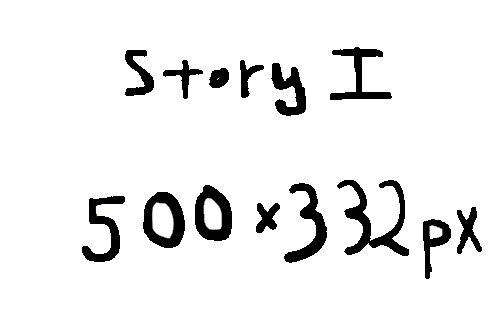 Story I
500×332px